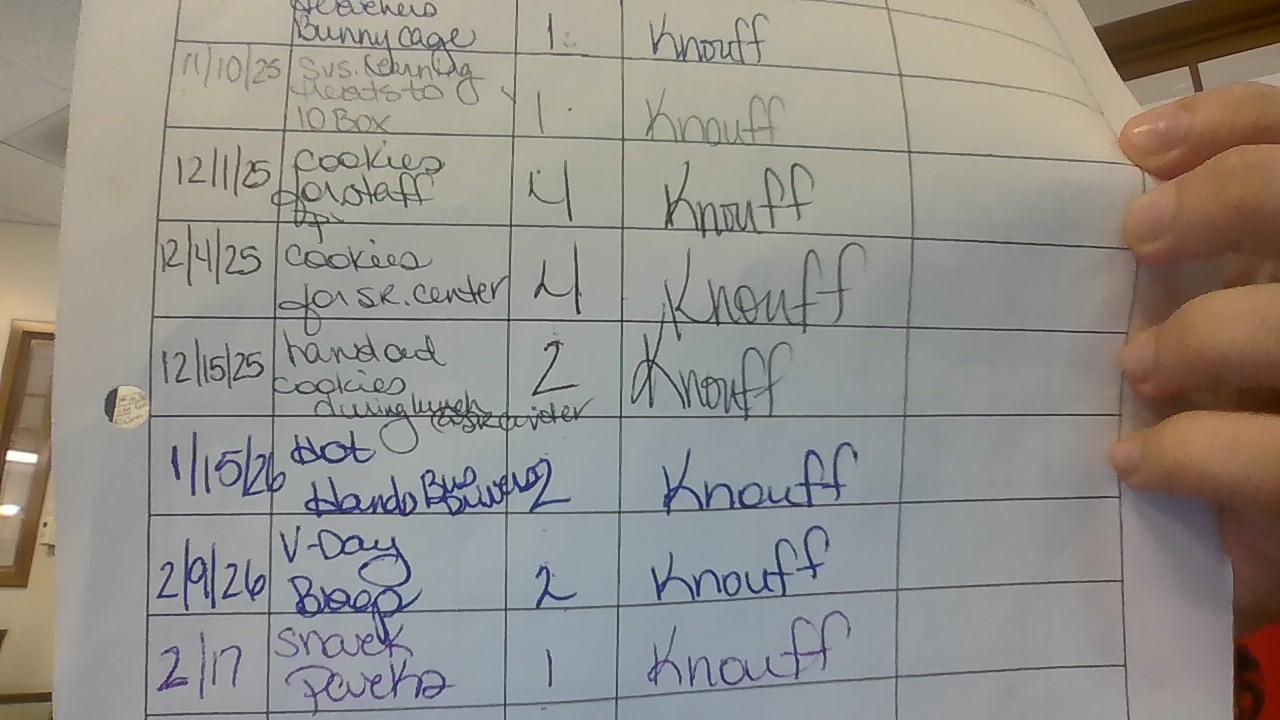 Bunny cage 1 Knouff
11/10/25
10 Box 1 Knouff
12/1/25 cookies
for staff 4 Knouff
12/4/25 cookies
for sr. center 4 Knouff
12/15/25 hand out
cookies 2 Knouff
during lunch
1/15/26 Hot
Hands Bus Drivers 2 Knouff
2/9/26 V-Day
Bags 2 Knouff
2/17 snack
Packs 1 Knouff